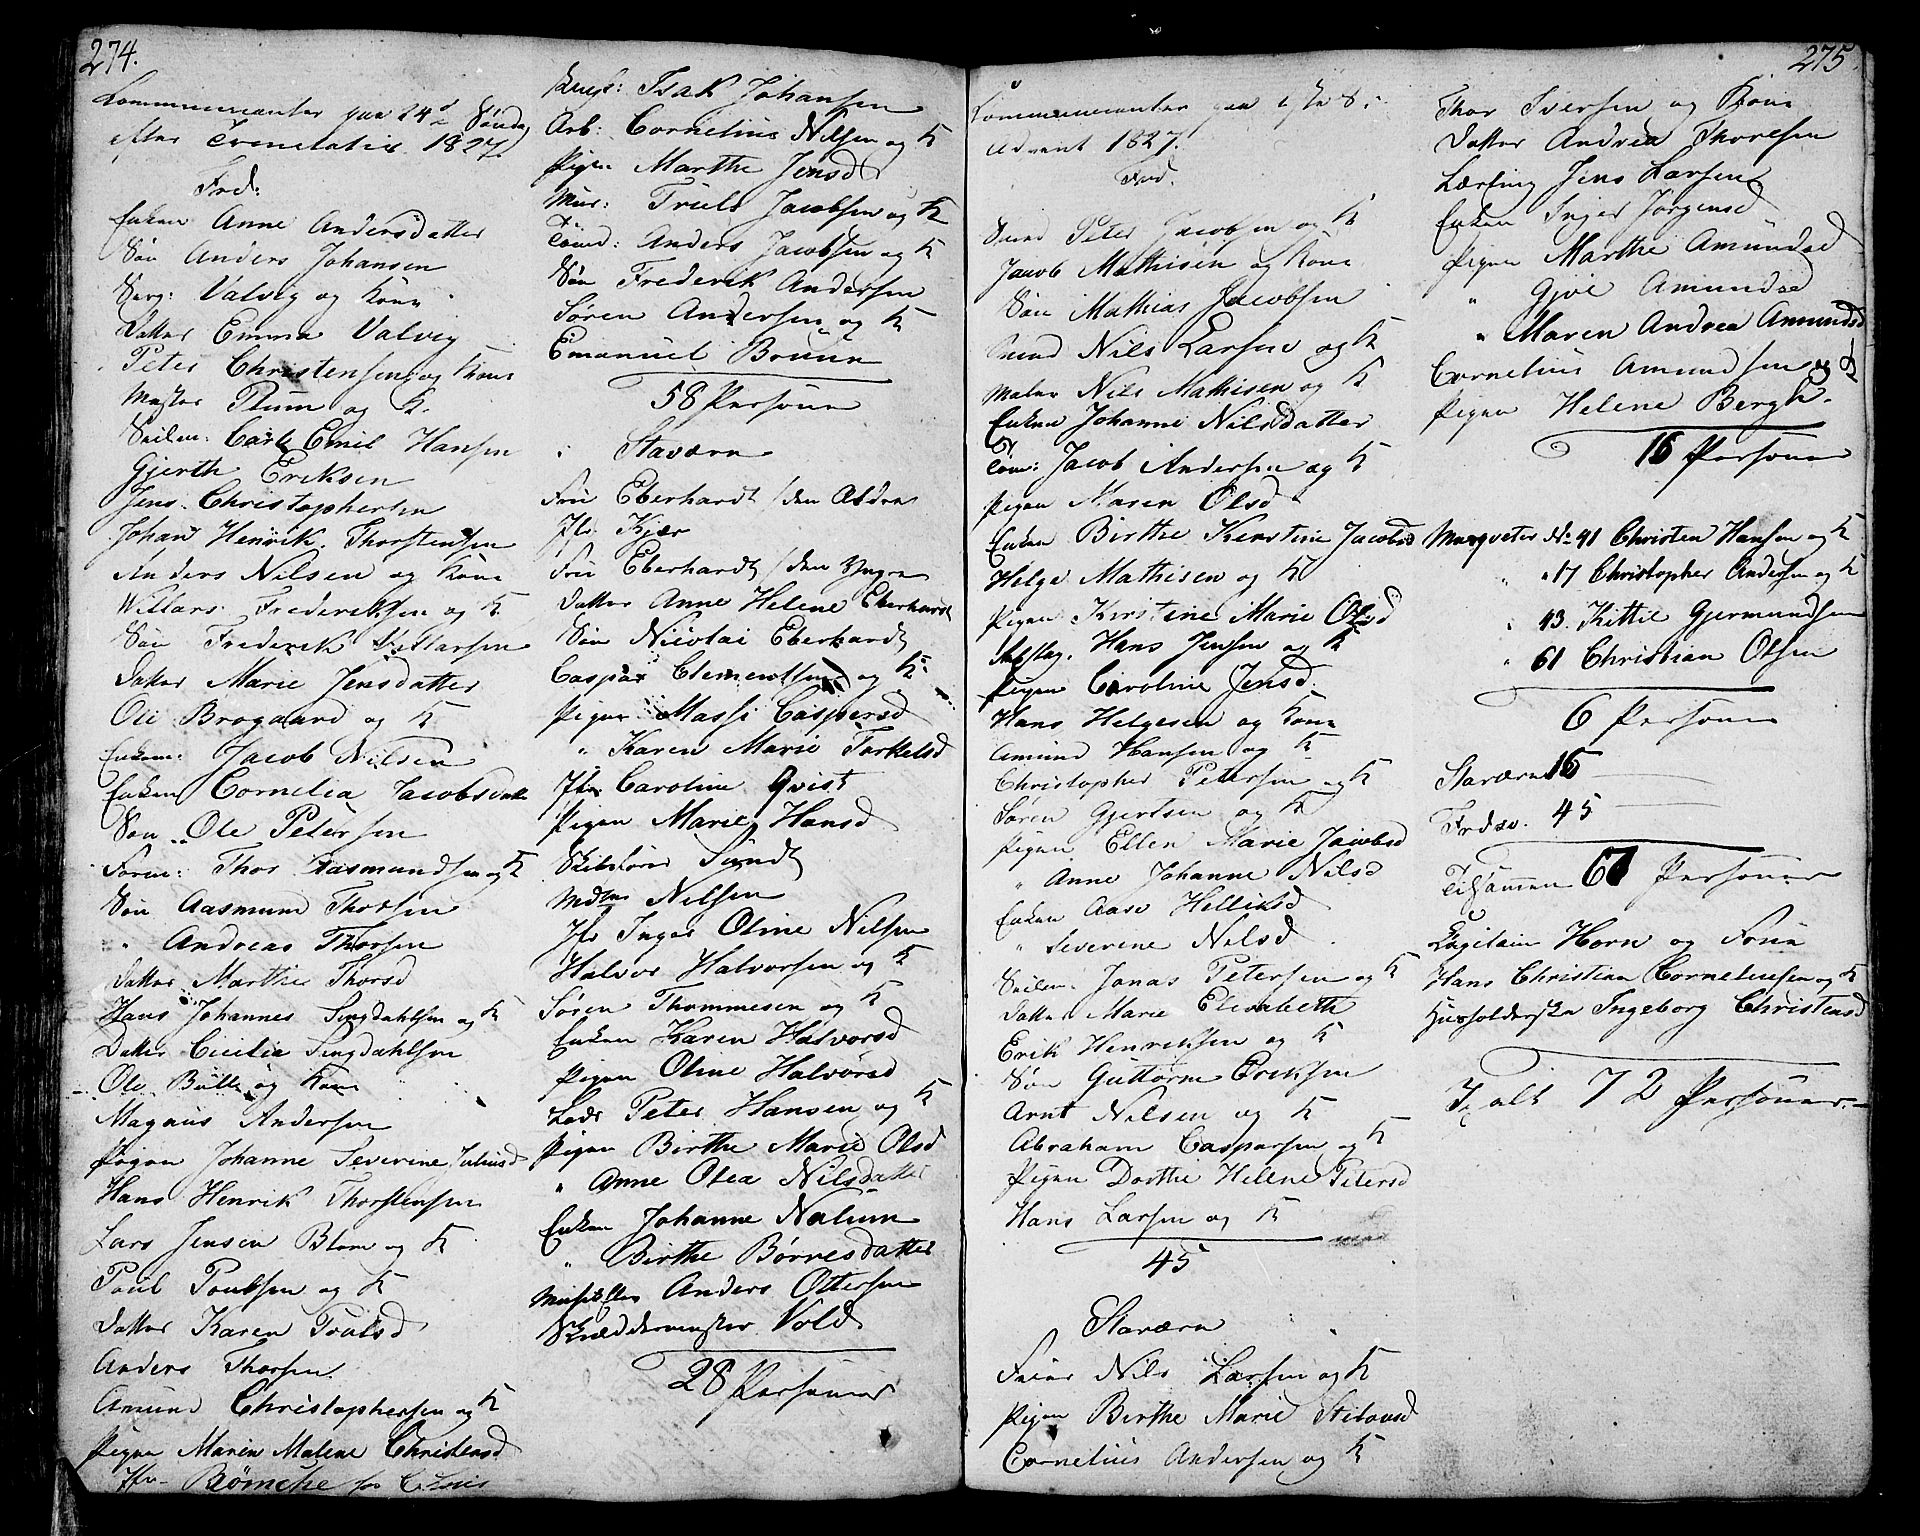 274.
Communicanter paa 24d Søndag
efter Trenetatis 1827.
Fred:
Enken Anne Andersdatter
Søn Anders Johansen
Serg: Valvig og Kone
Datter Emma Valvig
Peter Christensen og Kone
Mester Plum og K.
Seilm: Carl Emil Hansen
Gjerth Eriksen
Jens Christophersen
Johan Henrik Thorstensen
Anders Nilsen og Kone
Willars Frederiksen og K
Søn Frederik Willarsen
Datter Marie Jensdatter
Ole Brogaard og K
Enkem: Jacob Nilsen
Enken Cornelia Jacobsdatt
Søn Ole Petersen
Foren: Thor Aasmundsen og K
Søn Aasmund Thorsen
" Andreas Thorsen
Datter Marthe Thorsd
Hans Johannes Lingdahlsen og K
Datter Cicilia Lingdahlsen
Ole Bülle og Kone
Magnus Andersen
Pigen Johanne Severine Juliusd
Hans Henrik Thorstensen
Lars Jensen Blom og K
Poul Poulsen og K
Datter Karen Poulsd
Anders Thorsen
Amund Christophersen og K
Pigen Maren Malene Christensd
Jfr Bömcke
Isak Johansen
Arb: Cornelius Nilsen og K
Pigen Marthe Jensd
Mur: Truls Jacobsen og K
Tömd: Anders Jacobsen og K
Søn Frederik Andersen
Søren Andersen og K
Emanuel Bruun
58 Personer
Staværn
Fru Eberhardt /den Ældre
Jfr Kjær
Fru Eberhardt /den Yngre
Datter Anne Helene Eberhardt
Søn Nicolai Eberhardt
Caspar Clementsen og K
Pigen Massi Caspersd
" Karen Marie Tarkelsd
Jfr Caroline Qvist
Pigen Marie Hansd
Skibsfører Syndt
Mdme Nilsen
Jfr Inger Oline Nilsen
Halvor Halvorsen og K
Søren Thommesen og K
Enken Karen Halvorsd
Pigen Oline Halvorsd
Lods Peter Hansen og K
Pigen Birthe Marie Olsd
" Anne Olea Nilsdatter
Enken Johanne Nalum
" Birthe Börresdatter
Anders Ottersen
Skreddermester Vold
28 Personer
275
Communicanter paa 1ste S. i
Advent 1827.
Fred.
Smed Peter Jacobsen og K
Jacob Mathisen og Kone
Søn Mathias Jacobsen
Smed Nils Larsen og K
Maler Nils Mathisen og K
Enken Johanne Nilsdatter
Töm: Jacob Andersen og K
Pigen Maren Olsd
Enken Birthe Kerstine Jacobsd
Helge Mathisen og K
Pigen Kirstine Marie Olsd
Hans Jensen og K
Pigen Caroline Jensd.
Hans Helgesen og Kone
Amund Hansen og K
Christopher Petersen og K
Søren Gjertsen og K
Pigen Ellen Marie Jacobsd
" Anne Johanne Nilsd
Enken Aase Helliksd
" Severine Nilsd
Seilm. Jonas Petersen og K
Datter Marie Elisabeth
Erik Henriksen og K
Søn Guttorm Eriksen
Arnt Nilsen og K
Abraham Caspersen og K
Pigen Dorthe Helene Petersd
Hans Larsen og K
45
Staværn
Feier Nils Larsen og K
Pigen Birthe Marie Stilausd
Cornelius Andersen og K
Thor Iversen og Kone
Datter Andrea Thoresen
Lærling Jens Larsen
Enken Inger Jörgensd
Pigen Marthe Amundsd
" Gjöe Amundsd
" Maren Andrea Amundsd
Cornelius Amundsen og K
Pigen Helene Bergh.
16 Personer
Marqueter No 41 Christen Hansen og K
" " 17 Christopher Andersen og K
" 43. Kittil Gjermundsen
" 61 Christian Olsen
6 Personer
Staværn 16
Fredsv. 45
Tilsammen 67 Personer
Capitain Horn og Frue
Hans Christian Corneliussen og K
Huusholderske Ingeborg Christensd
I alt 72 Personer.